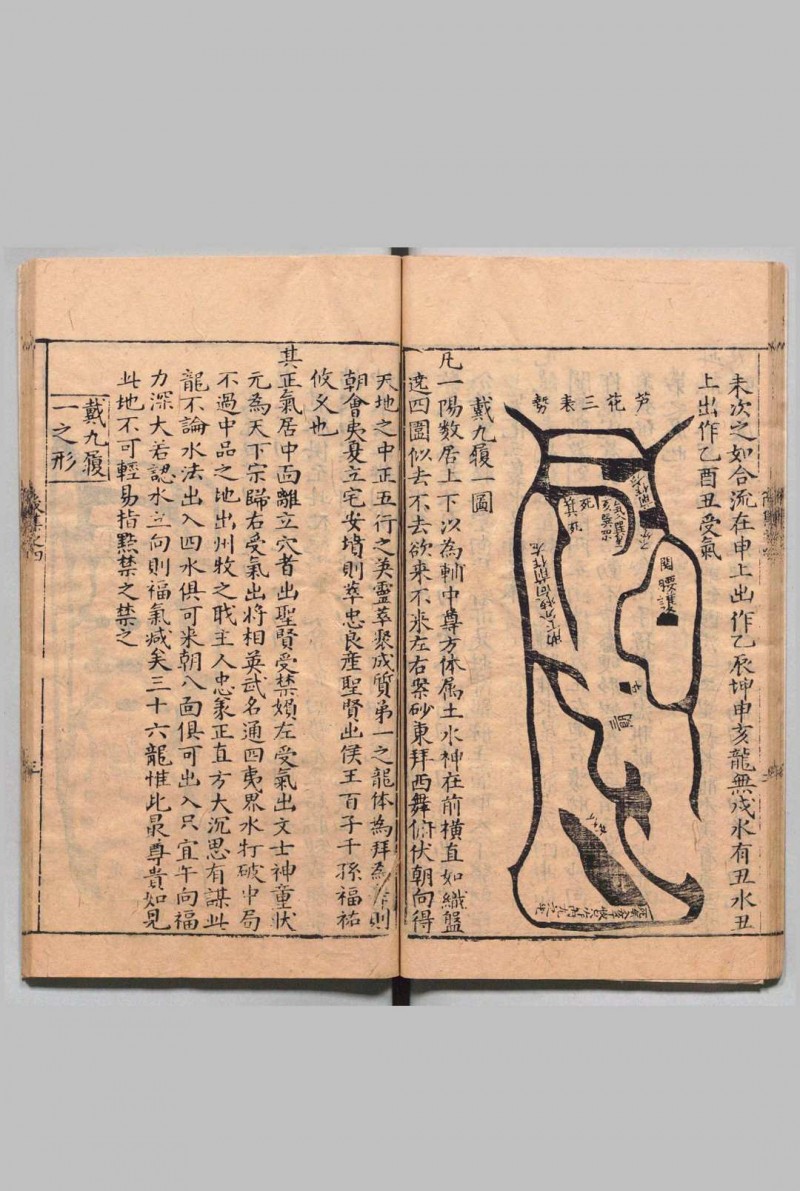 未次之如合流在申上出作乙辰坤申亥龍無戌水有丑水丑
上出作乙酉丑受氣
芦花三裊勢
戴九履一圖
凡一陽數居上下以為軸中尊方体属土水神在前橫直如織盤
遶四圍似去不去欲来不来左右緊砂東拜西舞俯伏朝向得
天地之中正五行之英靈萃聚成質弟一之龍体為拜為則
朝會夷夏立宅安墳則萃忠良産聖賢出侯王百子千孫福祐
攸乂也
其正氣居中面離立穴者出聖賢受禁嬪左受氣出文士神童狀
元為天下宗歸右受氣出將相英武名通四夷界水打破中局
不過中品之地出州牧之戝主人忠豪正直方大沉思有謀此
龍不論水法出入四水俱可来朝八面俱可出入只宜午向福
力深大若認水立向則福氣减矣三十六龍惟此最尊貴如見
此地不可輕易指㸃禁之禁之
戴九履
一之形